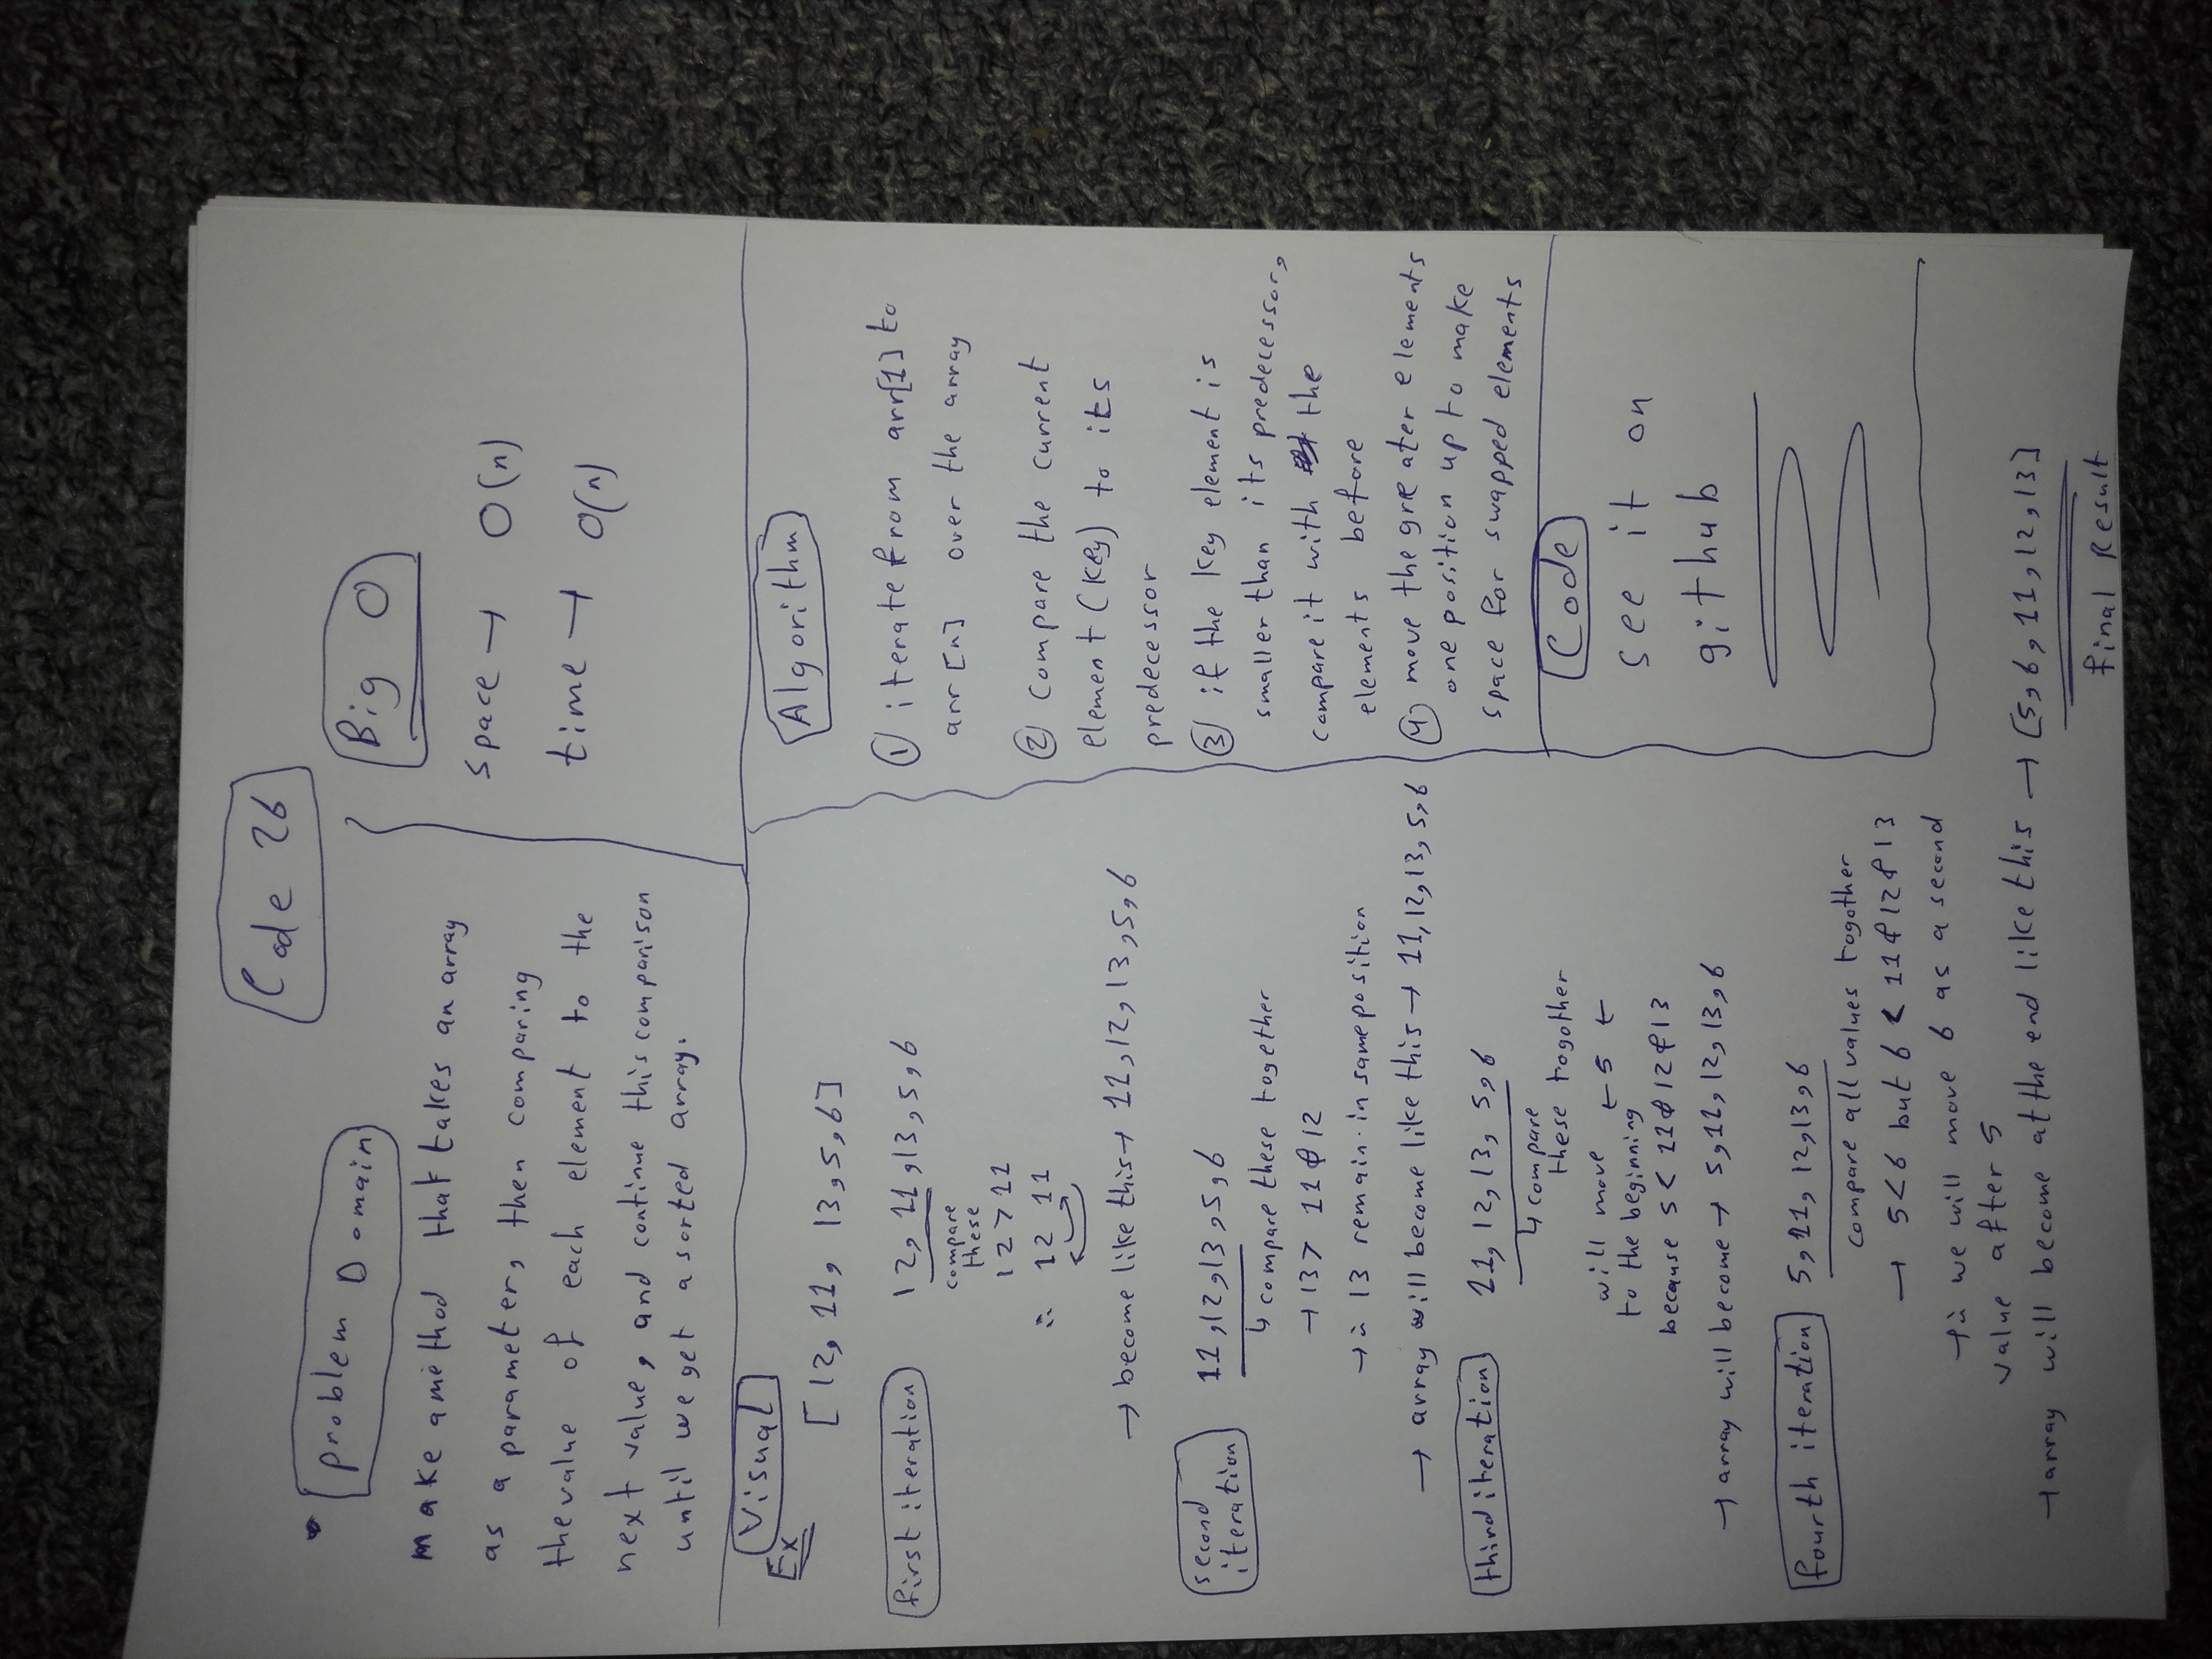 Code 26
problem Domain
make a method that takes an array
as a parameter, then comparing
the value of each element to the
next value, and continue this comparison
until we get a sorted array.
Big O
space → O(n)
time → O(n)
Visual
Ex
[12, 11, 13, 5, 6]
first iteration
12, 11, 13, 5, 6
compare
these
12 > 11
∴ 12 11
→ become like this → 11, 12, 13, 5, 6
second
iteration
11, 12, 13, 5, 6
↳ compare these together
→ 13 > 11 & 12
→ ∴ 13 remain in same position
→ array will become like this → 11, 12, 13, 5, 6
third iteration
11, 12, 13, 5, 6
↳ compare
these together
will move ← 5 ←
to the beginning
because 5 < 11 & 12 & 13
→ array will become → 5, 11, 12, 13, 6
fourth iteration
5, 11, 12, 13, 6
compare all values together
→ 5 < 6 but 6 < 11 & 12 & 13
→ ∴ we will move 6 as a second
value after 5
→ array will become at the end like this → [5, 6, 11, 12, 13]
final result
Algorithm
① iterate from arr[1] to
arr[n] over the array
② compare the current
element (key) to its
predecessor
③ if the key element is
smaller than its predecessor,
compare it with the
elements before
④ move the greater elements
one position up to make
space for swapped elements
Code
see it on
github